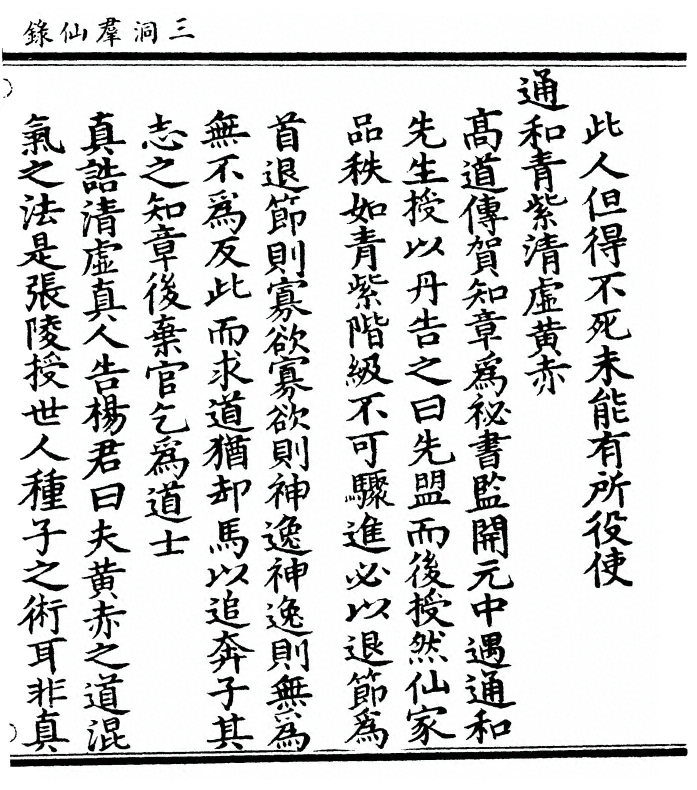 三洞羣仙錄
此人但得不死未能有所役使
通和青紫清虛黃赤
髙道傳賀知章爲祕書監開元中遇通和
先生授以丹告之曰先盟而後授然仙家
品秩如青紫階級不可驟進必以退節爲
首退節則寡欲寡欲則神逸神逸則無爲
無不爲反此而求道猶却馬以追奔子其
志之知章後棄官乞爲道士
真誥清虛真人告楊君曰夫黃赤之道混
氣之法是張陵授世人種子之術耳非真